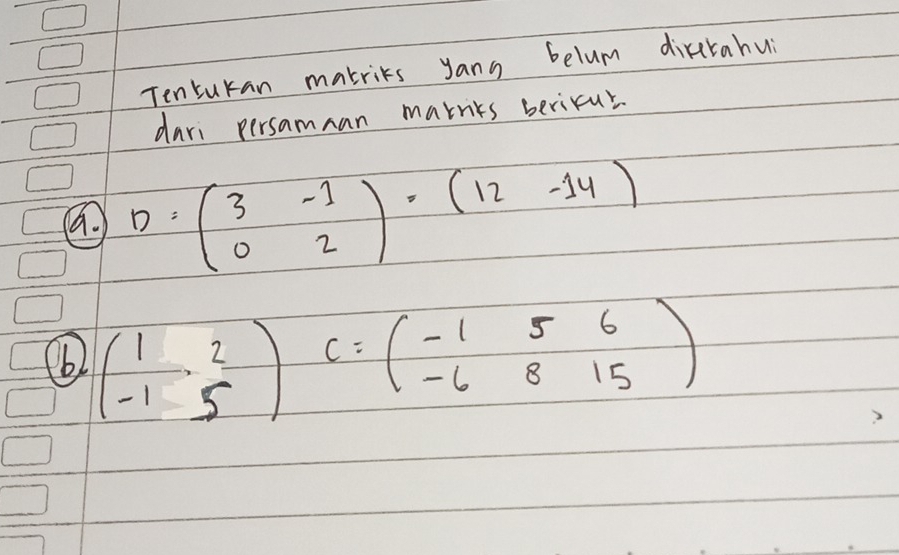 Tentukan matriks yang belum diketahui
dari persamaan matriks berikut
a. D = ( 3 -1 ) = (12 -14)
0 2
b. ( 1 2 ) C = ( -1 5 6 )
-1 5 -6 8 15